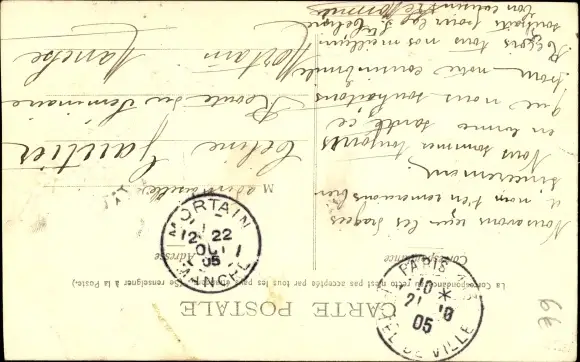 CARTE POSTALE
La Correspondance au recto n'est pas acceptée par tous les pays étrangers (Se renseigner à la Poste.)
Correspondance
Adresse
Nous avons reçu les dragées
et nous t'en remercions bien
sincèrement.
Nous sommes toujours
en bonne santé ce
que nous souhaitons
pour notre
Reçois tous nos meilleurs
souhaits pour la Ste Céline
Ton cousin
Mademoiselle
Céline Gautier
Route du Séminaire
Mortain
Manche
MORTAIN
12 22
05
MANCHE
PARIS
*
21 10
05
HOTEL DE VILLE